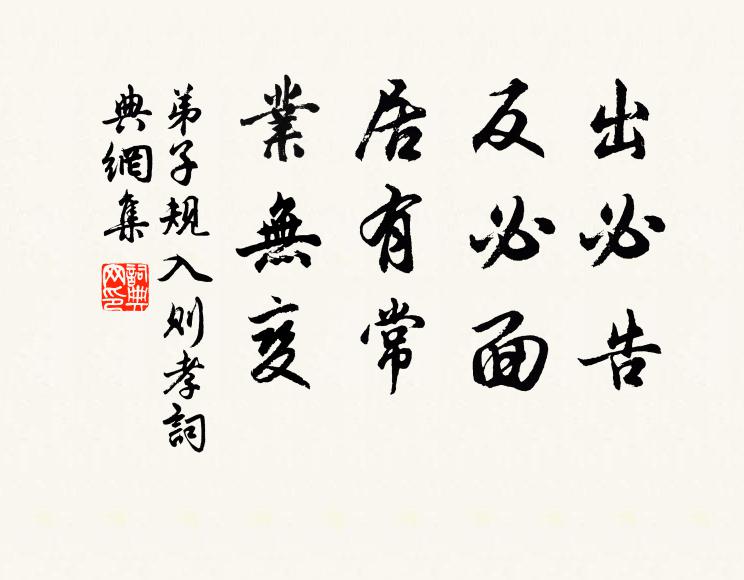 出必告
反必面
居有常
業無变
弟子规入则孝詞
典網集
詞典
网印